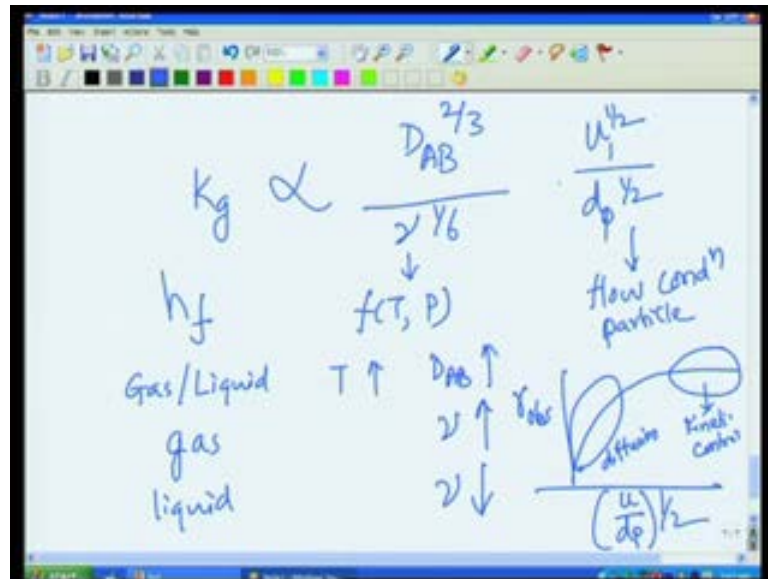 kg ∝ D_AB^2/3 / ν^1/6 · u_1^1/2 / d_p^1/2
h_f f(T, P) flow condⁿ
particle
Gas/Liquid T ↑ D_AB ↑
gas ν ↑
liquid ν ↓
r_obs
diffusion
Kinetic
control
(u/d_p)^1/2